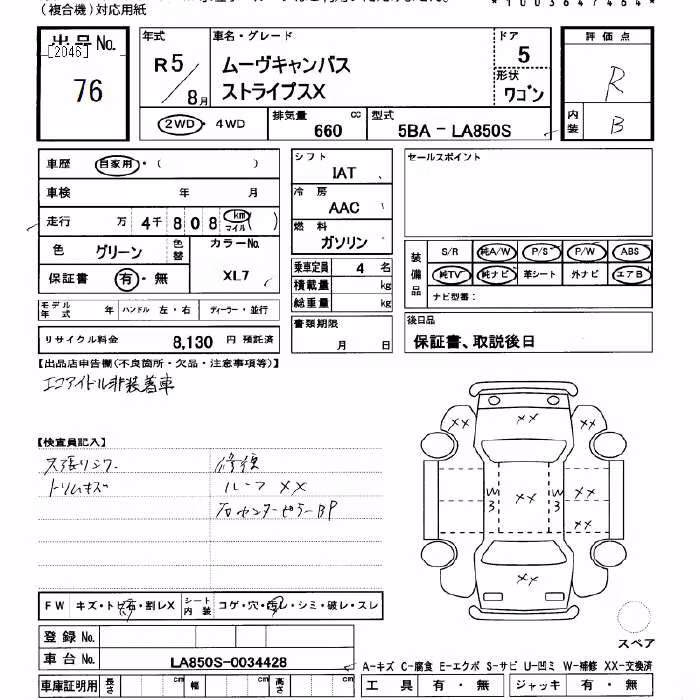 (複合機)対応用紙
*1003647464*
出品No.
[2046]
76
年式
R5/8月
車名・グレード
ムーヴキャンバス
ストライプスX
ドア
5
形状
ワゴン
評価点
R
内装
B
2WD・4WD
排気量
660 cc
型式
5BA - LA850S
車歴
自家用・( )
車検 年 月
走行 万 4千 8 0 8 km マイル ( )
色 グリーン
色替
カラーNo.
XL7
保証書 有・無
モデル年式 年
ハンドル 左・右
ディーラー・並行
リサイクル料金 8,130 円 預託済
シフト
IAT
冷房
AAC
燃料
ガソリン
乗車定員 4 名
積載量 kg
総重量 kg
書類期限
月 日
セールスポイント
装備品
S/R 純A/W P/S P/W ABS
純TV 純ナビ 革シート 外ナビ エアB
ナビ型番:
後日品
保証書、取説後日
【出品店申告欄(不良箇所・欠品・注意事項等)】
エコアイドル非装着車
【検査員記入】
天張りシワ
トリムキズ
修復
ルーフ XX
右センターピラーBP
XX
XX
XX
W3
XX
W3
XX
XX
XX
スペア
FW キズ・トビ石・割レX
シート内装 コゲ・穴・汚レ・シミ・破レ・スレ
登録No.
車台No. LA850S-0034428
車庫証明用 長さ cm 幅 cm 高さ cm
A-キズ C-腐食 E-エクボ S-サビ U-凹ミ W-補修 XX-交換済
工具 有・無 ジャッキ 有・無